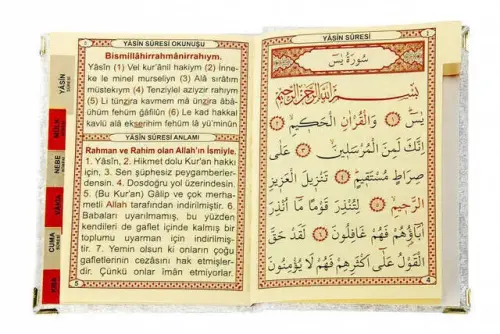 YÂSİN
SÛRESİ
MÜLK
SÛRESİ
NEBE
SÛRESİ
YÂSİN
CUMA
SÛRESİ
KISA
YÂSİN SÛRESİ OKUNUŞU
Bismillâhirrahmânirrahıym.
Yâsîn (1) Vel kur'ânil hakiym (2) İnne-
ke le minel murseliyn (3) Alâ sırâtım
müstekıym (4) Tenziylel aziyzir rahıym
(5) Li tünzira kavmem mâ ünzira âbâ-
ühüm fehüm ğâfilûn (6) Le kad hakkal
kavlü alâ ekserihim fehüm lâ yü'minûn
YÂSİN SÛRESİ ANLAMI
Rahman ve Rahim olan Allah'ın İsmiyle.
1. Yâsîn, 2. Hikmet dolu Kur'an hakkı
için, 3. Sen şüphesiz peygamberler-
densin. 4. Dosdoğru yol üzerindesin.
5. (Bu Kur'an) Gâlip ve çok merha-
metli Allah tarafından indirilmiştir. 6.
Babaları uyarılmamış, bu yüzden
kendileri de gaflet içinde kalmış bir
toplumu uyarman için indirilmiş-
tir. 7. Yemin olsun ki onların çoğu
gafletlerinin cezâsını hak etmişler-
dir. Çünkü onlar îman etmiyorlar.
5
YÂSİN SÛRESİ
سُورَةُ يٰسٓ
بِسْمِ اللّٰهِ الرَّحْمٰنِ الرَّحِيمِ
يٰسٓ ﴿١﴾ وَالْقُرْاٰنِ الْحَكِيمِ ﴿٢﴾
اِنَّكَ لَمِنَ الْمُرْسَلِينَ ﴿٣﴾ عَلٰى
صِرَاطٍ مُسْتَقِيمٍ ﴿٤﴾ تَنْزِيلَ الْعَزِيزِ
الرَّحِيمِ ﴿٥﴾ لِتُنْذِرَ قَوْمًا مَٓا اُنْذِرَ
اٰبَٓاؤُهُمْ فَهُمْ غَافِلُونَ ﴿٦﴾ لَقَدْ حَقَّ
الْقَوْلُ عَلٰٓى اَكْثَرِهِمْ فَهُمْ لَا يُؤْمِنُونَ
4